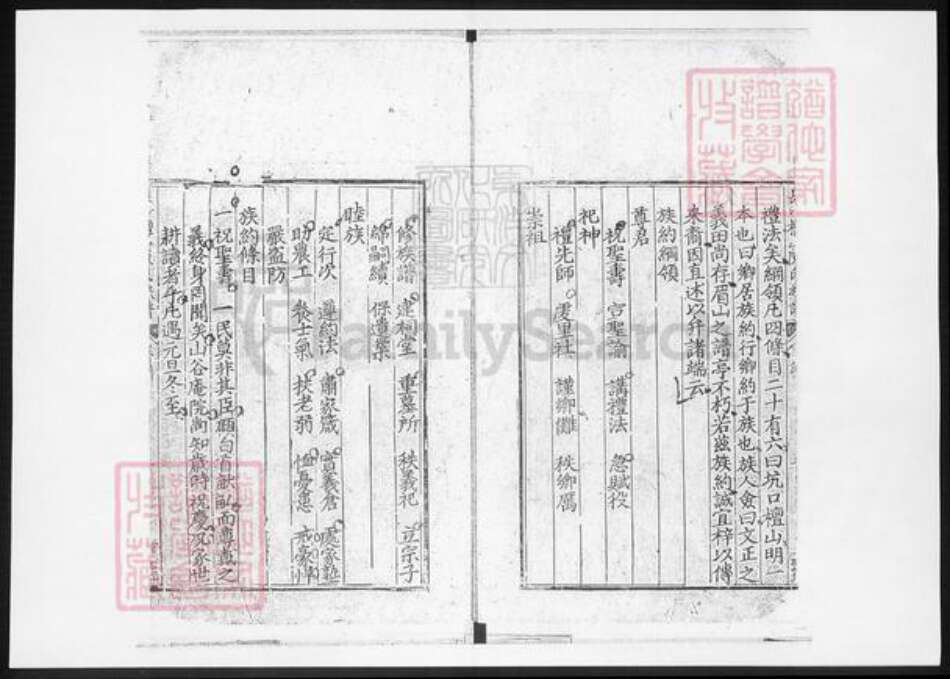 禮法矣綱領凡四條目二十有六曰坑口檀山明一
本也曰鄉居族約行鄉約于族也族人僉曰文正之
義田尚存眉山之譜亭不朽若茲族約誠宜梓以傳
來裔因直述以弁諸端云
族約綱領
尊君
祝聖壽 宣聖諭 講禮法 急賦役
祀神
禮先師 處里社 謹鄉儺 秩鄉厲
崇祖
修族譜 建祠堂 重墓所 秩義祀 立宗子
綿嗣續 保遺業
睦族
定行次 遵約法 肅家箴 實義倉 處家塾
助農工 養士氣 扶老弱 恤憂患 戒豪悍
嚴盜防
族約條目
一祝聖壽 一民莫非其臣顧自有畎畝而尊尊之
義終身罔聞矣山谷庵院尚知歲時祝慶況家世
耕讀者乎凡遇元旦冬至
FamilySearch